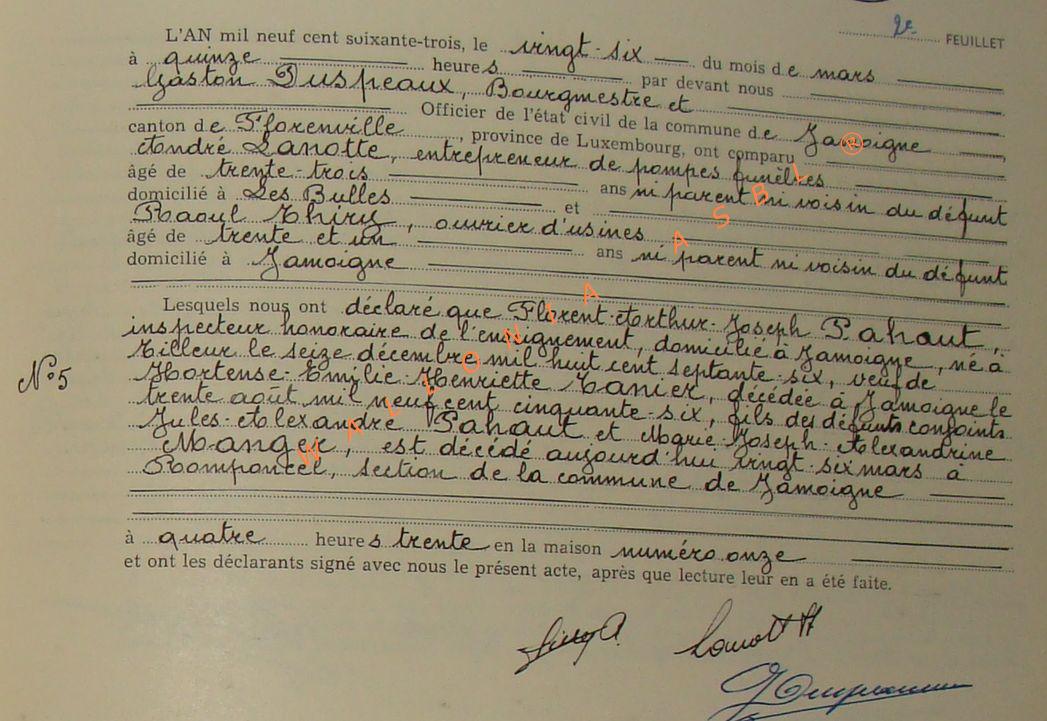 2e FEUILLET
L'AN mil neuf cent soixante-trois, le vingt-six du mois de mars
à quinze heures par devant nous
Gaston Duspeaux, Bourgmestre et
Officier de l'état civil de la commune de Jamoigne
canton de Florenville, province de Luxembourg, ont comparu
André Lanotte, entrepreneur de pompes funèbres
âgé de trente-trois ans ni parent ni voisin du défunt
domicilié à Les Bulles et
Raoul Thiry, ouvrier d'usines
âgé de trente et un ans ni parent ni voisin du défunt
domicilié à Jamoigne
Lesquels nous ont déclaré que Florent-Arthur-Joseph Pahaut,
inspecteur honoraire de l'enseignement, domicilié à Jamoigne, né à
Tilleur le seize décembre mil huit cent septante-six, veuf de
N°5 Hortense-Emilie-Henriette Tanier, décédée à Jamoigne le
trente août mil neuf cent cinquante-six, fils des défunts conjoints
Jules-Alexandre Pahaut et Marie-Joseph-Alexandrine
Manger, est décédé aujourd'hui vingt-six mars à
Romponcel, section de la commune de Jamoigne
à quatre heures trente en la maison numéro onze
et ont les déclarants signé avec nous le présent acte, après que lecture leur en a été faite.
WALLONIA ASBL @